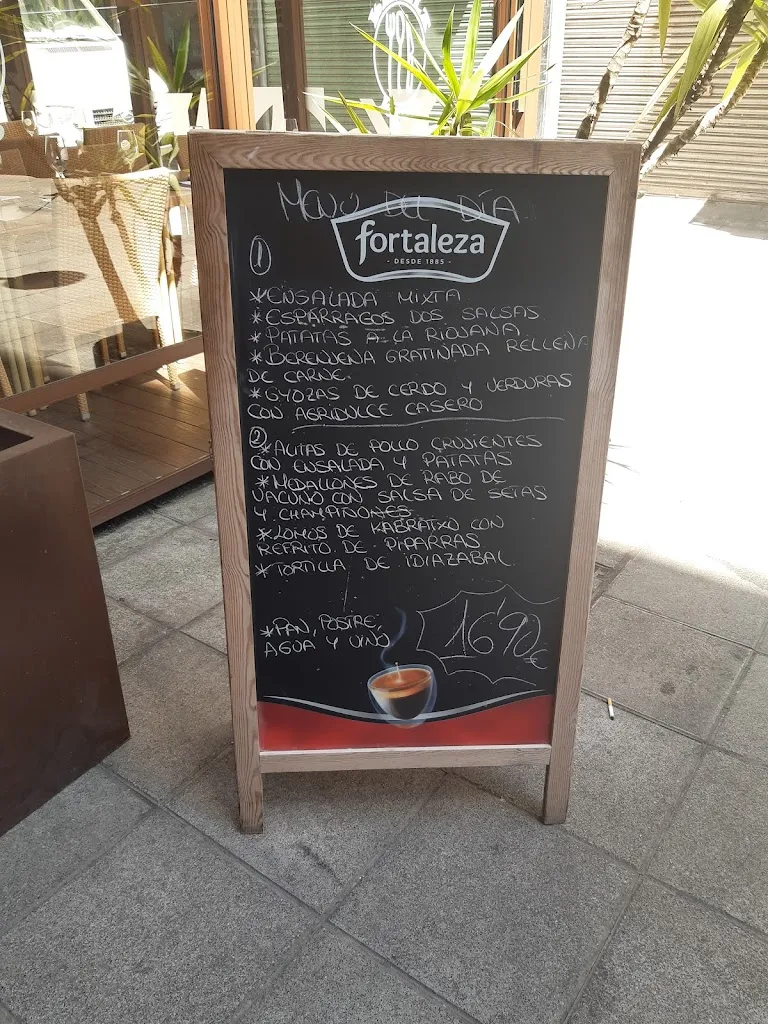 MENÚ DEL DÍA
fortaleza
- DESDE 1885 -
1
*ENSALADA MIXTA
*ESPÁRRAGOS DOS SALSAS
*PATATAS A LA RIOJANA
*BERENJENA GRATINADA RELLENA
DE CARNE
*GYOZAS DE CERDO Y VERDURAS
CON AGRIDULCE CASERO
2
*ALITAS DE POLLO CRUJIENTES
CON ENSALADA Y PATATAS
*MEDALLONES DE RABO DE
VACUNO CON SALSA DE SETAS
Y CHAMPIÑONES
*LOMOS DE KABRATXO CON
REFRITO DE PIPARRAS
*TORTILLA DE IDIAZABAL
*PAN, POSTRE,
AGUA Y VINO
16'90€